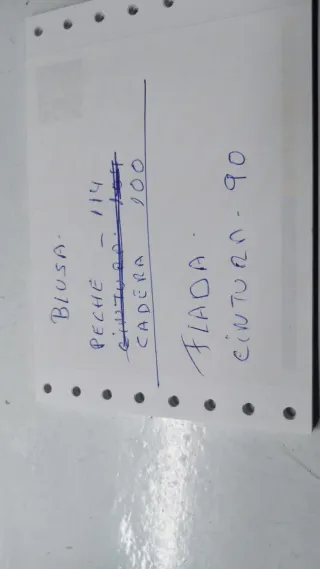 BLUSA.
PECHE - 114
CADERA 100
FLADA.
CINTURA - 90